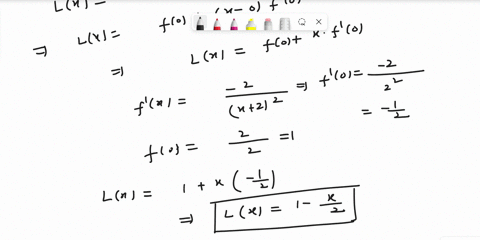 L(x) =
⇒ L(x) = f(0) (x-0) f(0)
⇒ L(x) = f(0) + x · f'(0)
f'(x) = -2/(x+2)² ⇒ f'(0) = -2/2²
= -1/2
f(0) = 2/2 = 1
L(x) = 1 + x (-1/2)
⇒ L(x) = 1 - x/2